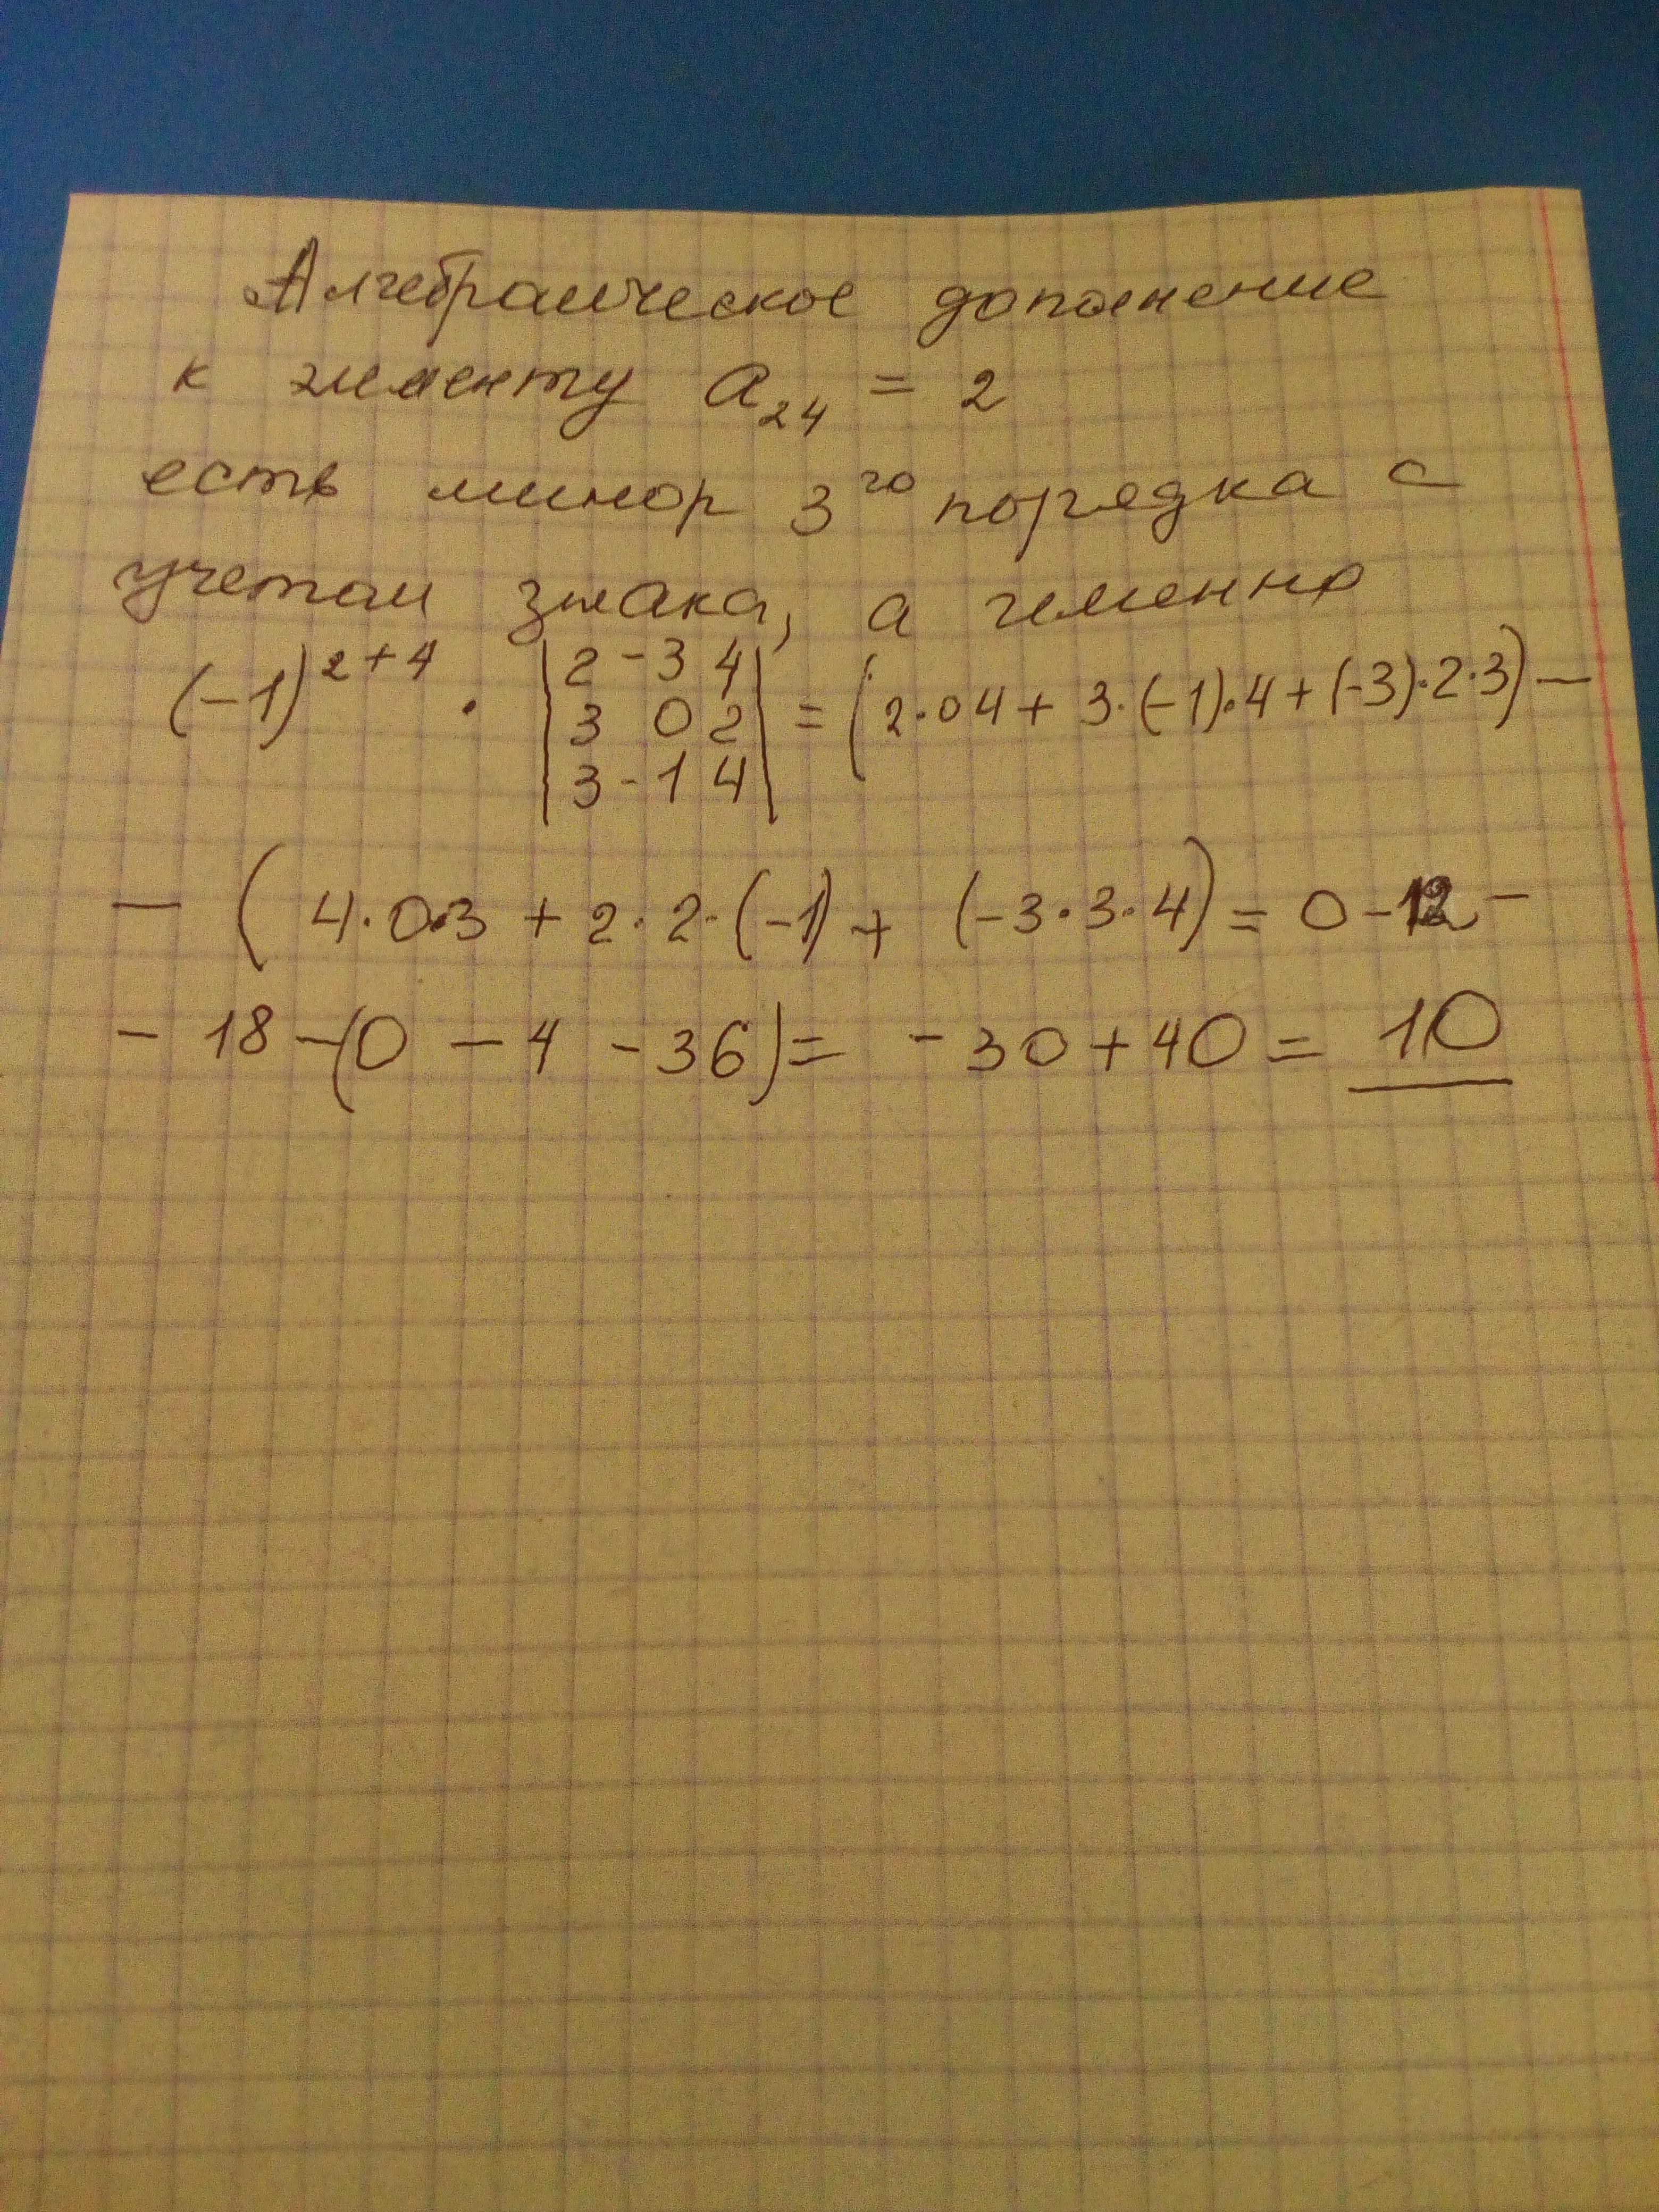 Алгебраическое дополнение
к элементу a₂₄ = 2
есть минор 3го порядка с
учетом знака, а именно
(-1)²⁺⁴ · |2 -3 4| = (2·04 + 3·(-1)·4 + (-3)·2·3) —
|3 0 2|
|3 -1 4|
— (4·0·3 + 2·2·(-1) + (-3·3·4) = 0 - 12 -
- 18 - (0 - 4 - 36) = -30 + 40 = 10